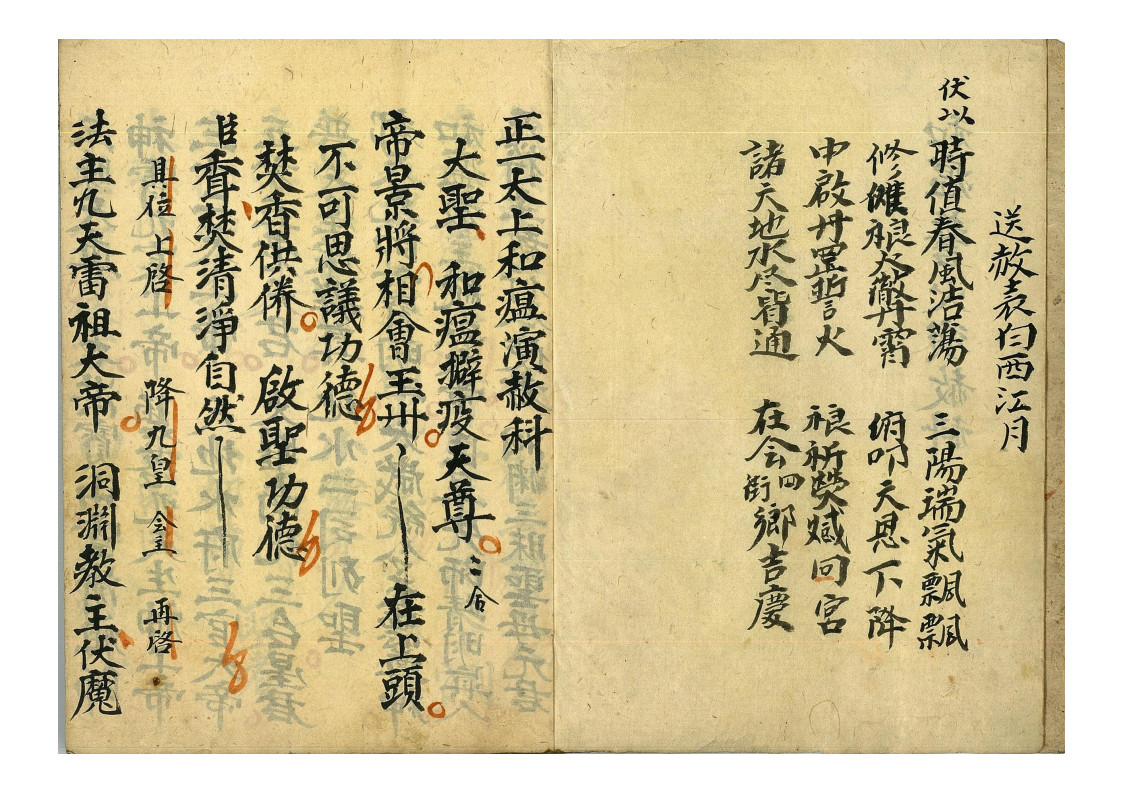 送赦表白西江月
伏以時值春風浩蕩 三陽瑞氣飄飄
修 霄 俯叩天恩下降
申啟丹 火 祈熒 回宮
諸天地水尽皆通 在会四街鄉吉慶
正一太上和瘟演赦科
大聖 和瘟擗疫天尊 三合
帝景將相會玉州 在上頭
不可思議功德
焚香供養 啟聖功德
臣 焚清淨自然
具位上啓 降九皇 会主 再啓
法主九天雷祖大帝 洞淵教主伏魔